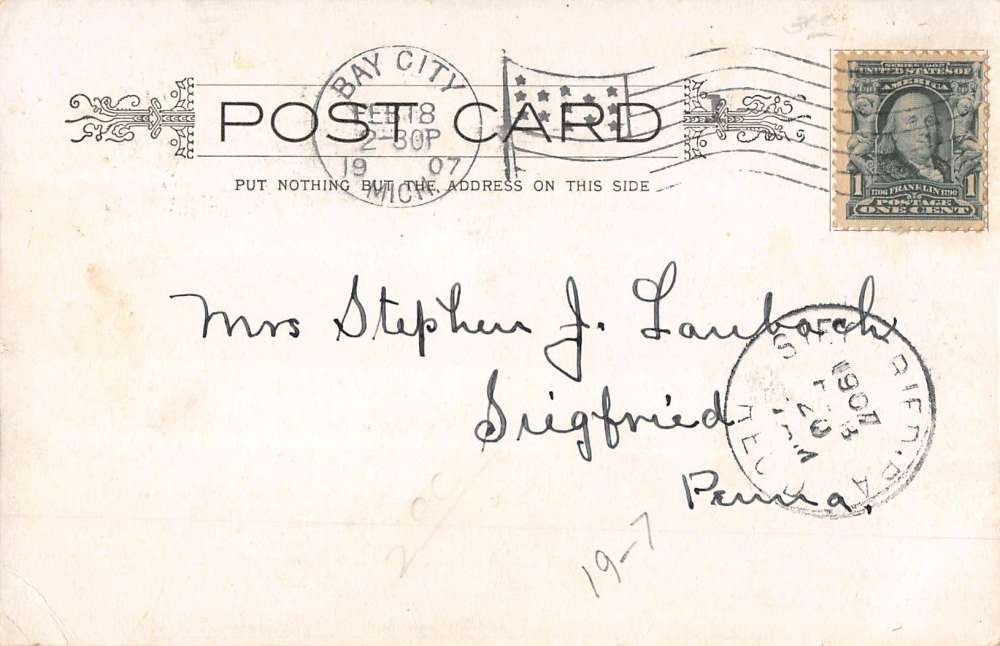 BAY CITY
FEB 18
2-30P
19 07
MICH.
POST CARD
PUT NOTHING BUT THE ADDRESS ON THIS SIDE
SERIES 1902
UNITED STATES OF
AMERICA
1 1706 FRANKLIN 1790 1
POSTAGE
ONE CENT
Mrs Stephen J. Laubach
Siegfried
Penna,
1907
19-7